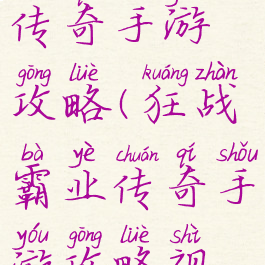 传奇手游
gōng lüè kuáng zhàn
攻略(狂战
bà yè chuán qí shǒu
霸业传奇手
yóu gōng lüè shì
游攻略视